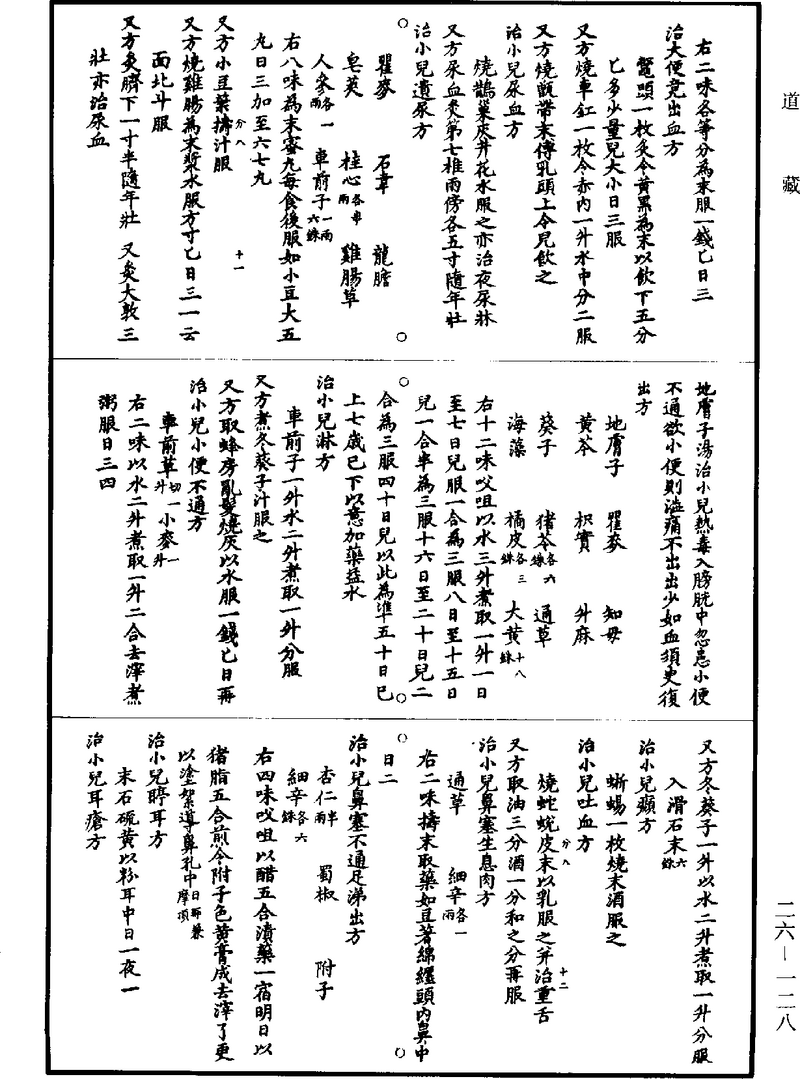 道藏
右二味各等分為末服一錢匕日三
治大便竟出血方
鼈頭一枚炙令黃黑為末以飲下五分
匕多少量兒大小日三服
又方燒車釭一枚令赤內一升水中分二服
又方燒甑帶末傅乳頭上令兒飲之
治小兒尿血方
燒鵲巢灰井花水服之亦治夜尿牀
又方尿血灸第七椎兩傍各五寸隨年壯
治小兒遺尿方
瞿麥 石韋 龍膽
皂莢 桂心各半兩 雞腸草
人參各一兩 車前子一兩六銖
右八味為末蜜丸每食後服如小豆大五
丸日三加至六七丸
又方小豆葉擣汁服
又方燒雞腸為末漿水服方寸匕日三一云
面北斗服
又方灸臍下一寸半隨年壯 又灸大敦三
壯亦治尿血
分八
十一
地膚子湯治小兒熱毒入膀胱中忽患小便
不通欲小便則澁痛不出出少如血須臾復
出方
地膚子 瞿麥 知母
黃芩 枳實 升麻
葵子 猪苓各六銖 通草
海藻 橘皮各三銖 大黃十八銖
右十二味㕮咀以水三升煮取一升一日
至七日兒服一合為三服八日至十五日
兒一合半為三服十六日至二十日兒二
合為三服四十日兒以此為準五十日已
上七歲已下以意加藥益水
治小兒淋方
車前子一升水二升煮取一升分服
又方煮冬葵子汁服之
又方取蜂房亂髮燒灰以水服一錢匕日再
治小兒小便不通方
車前草切一升 小麥一升
右二味以水二升煮取一升二合去滓煮
粥服日三四
又方冬葵子一升以水二升煮取一升分服
入滑石末六銖
治小兒癲方
蜥蜴一枚燒末酒服之
治小兒吐血方
燒蛇蛻皮末以乳服之并治重舌
又方取油三分酒一分和之分再服
治小兒鼻塞生息肉方
通草 細辛各一兩
右二味擣末取藥如豆著綿纏頭內鼻中
日二
治小兒鼻塞不通足涕出方
杏仁半兩 蜀椒 附子
細辛各六銖
右四味㕮咀以醋五合漬藥一宿明日以
猪脂五合煎令附子色黃膏成去滓了更
以塗絮導鼻孔中日再兼摩頂
治小兒聤耳方
末石硫黃以粉耳中日一夜一
治小兒耳瘡方
分八
十二
二六—一二八